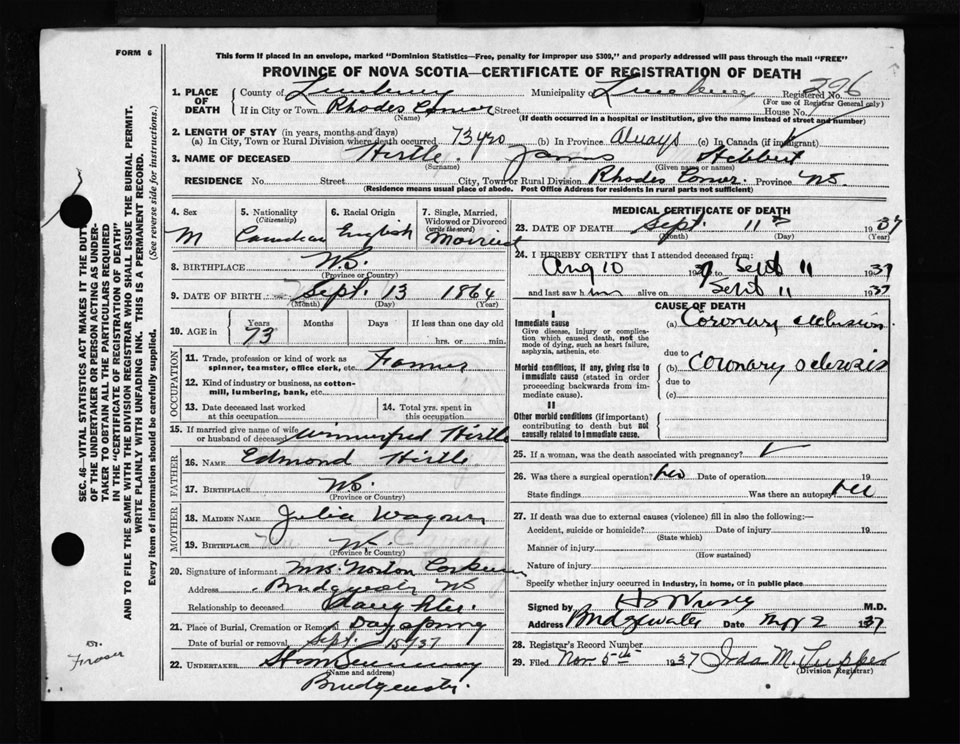 FORM 6
This form if placed in an envelope, marked "Dominion Statistics—Free, penalty for improper use $300," and properly addressed will pass through the mail "FREE"
PROVINCE OF NOVA SCOTIA—CERTIFICATE OF REGISTRATION OF DEATH
296
1. PLACE OF DEATH County of Lunenburg Municipality of Lunenburg Registered No.
(For use of Registrar General only)
If in City or Town Rhodes Corner Street House No.
(Name) (If death occurred in a hospital or institution, give the name instead of street and number)
2. LENGTH OF STAY (in years, months and days)
(a) In City, Town or Rural Division where death occurred 73 yrs (b) In Province Always (c) In Canada (if immigrant)
3. NAME OF DECEASED Hirtle James Hibbert
(Surname) (Given name or names)
RESIDENCE No. Street City, Town or Rural Division Rhodes Corner. Province NS.
(Residence means usual place of abode. Post Office Address for residents in rural parts not sufficient)
4. Sex M
5. Nationality (Citizenship) Canadian
6. Racial Origin English
7. Single, Married, Widowed or Divorced (write the word) Married
8. BIRTHPLACE N.S.
(Province or Country)
9. DATE OF BIRTH Sept. 13 1864
(Month) (Day) (Year)
10. AGE in Years 73 Months Days If less than one day old hrs. or min.
OCCUPATION
11. Trade, profession or kind of work as spinner, teamster, office clerk, etc. Farmer
12. Kind of industry or business, as cotton-mill, lumbering, bank, etc.
13. Date deceased last worked at this occupation
14. Total yrs. spent in this occupation
15. If married give name of wife or husband of deceased Winnifred Hirtle
FATHER
16. NAME Edmond Hirtle
17. BIRTHPLACE NS.
(Province or Country)
MOTHER
18. MAIDEN NAME Julia Wagner
19. BIRTHPLACE NS.
(Province or Country)
20. Signature of informant Mrs. Norton Corkum
Address Bridgewater NS
Relationship to deceased daughter.
21. Place of Burial, Cremation or Removal Dayspring
Date of burial or removal Sept. 15/37
22. UNDERTAKER
(Name and address)
Bridgewater.
MEDICAL CERTIFICATE OF DEATH
23. DATE OF DEATH Sept. 11th 1937
(Month) (Day) (Year)
24. I HEREBY CERTIFY that I attended deceased from:
Aug 10 1937 to Sept 11 1937
and last saw him alive on Sept 11 1937
CAUSE OF DEATH
I
Immediate cause
Give disease, injury or complication which caused death, not the mode of dying, such as heart failure, asphyxia, asthenia, etc
(a) Coronary occlusion.
due to
Morbid conditions, if any, giving rise to immediate cause (stated in order proceeding backwards from immediate cause).
(b) Coronary sclerosis
due to
(c)
II
Other morbid conditions (if important) contributing to death but not causally related to immediate cause.
25. If a woman, was the death associated with pregnancy?
26. Was there a surgical operation? no Date of operation 19
State findings Was there an autopsy?
27. If death was due to external causes (violence) fill in also the following:—
Accident, suicide or homicide? Date of injury 19
(State which)
Manner of injury
(How sustained)
Nature of injury
Specify whether injury occurred in industry, in home, or in public place
Signed by M.D.
Address Bridgewater Date Nov 2 1937
28. Registrar's Record Number
29. Filed Nov. 5th 1937 Ida M. Tupper
(Division Registrar)
SEC. 46—VITAL STATISTICS ACT MAKES IT THE DUTY
OF THE UNDERTAKER OR PERSON ACTING AS UNDER-
TAKER TO OBTAIN ALL THE PARTICULARS REQUIRED
IN THE "CERTIFICATE OF REGISTRATION OF DEATH"
AND TO FILE THE SAME WITH THE DIVISION REGISTRAR WHO SHALL ISSUE THE BURIAL PERMIT.
WRITE PLAINLY WITH UNFADING INK. THIS IS A PERMANENT RECORD.
Every item of information should be carefully supplied. (See reverse side for instructions.)
Fraser